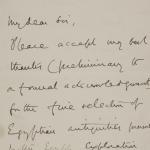 My dear Sir,
Please accept my best
thanks (preliminary to
a formal acknowledgment)
for the fine selection of
Egyptian antiquities
Exploration